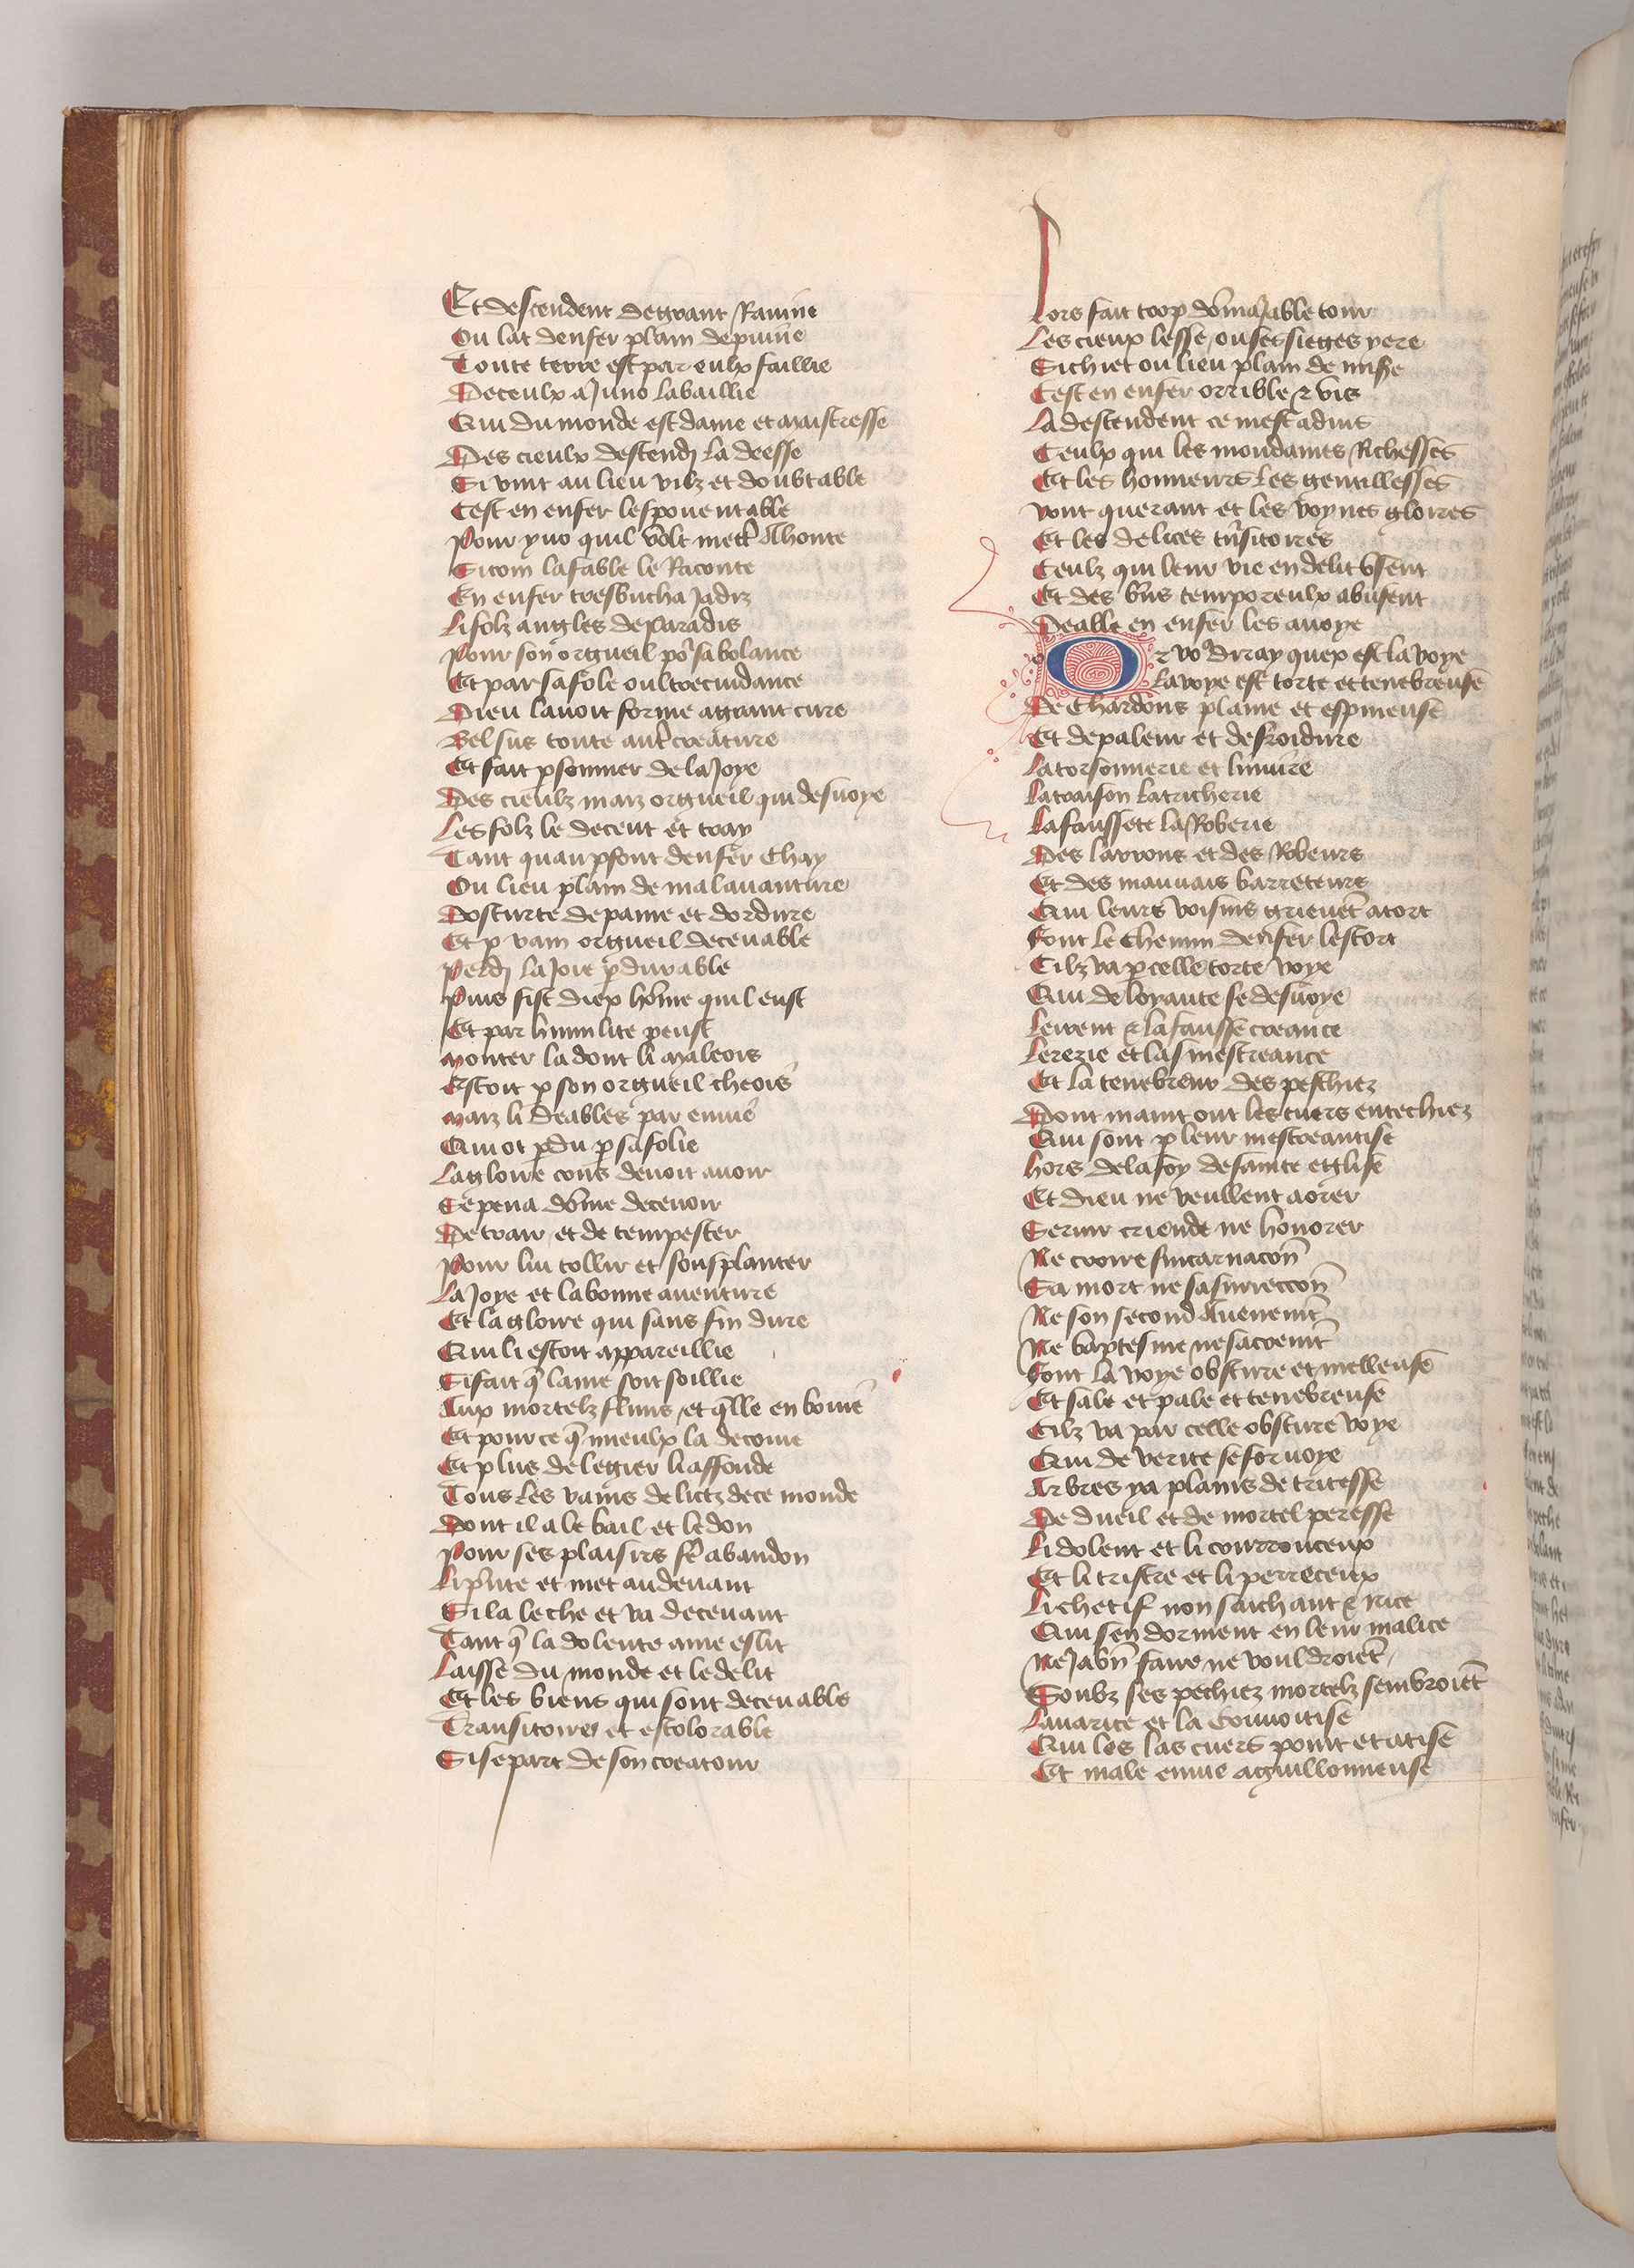 Et descendent de grant Ravine
Ou lac denfer plain de puine
Toute terre est par eulx saillie
De ceulx a Juno la baillie
Qui du monde est dame et maistresse
Des cieulx descendi la deesse
Si vint au lieu vilz et doubtable
Cest en enfer lespouentable
Pour yno quil volt mettr a honte
Sicom la fable le Raconte
En enfer tresbucha Jadiz
Li folz angles de paradis
Pour son orgueil po sa bolance
Et par sa fole oultrecuidance
Dieu lauoit forme a grant cure
Bel sus toute autr creature
Et fait psonnier de la Joye
Des cieulz maiz orgueil qui desuoye
Les folz le deceut et tray
Tant quau psont denfer Chay
Ou lieu plain de malauanture
Doscurte de paine et dordure
Et p vain orgueil deceuable
Perdi la Joie pdurable
Puis fist diex home quil eust
Et par humilite peust
Monter la dont li maleois
Estoit p son orgueil cheois
Maiz li deables par enuie
Qui ot pdu p sa folie
La gloire cons deuoit auoir
Se pena dome deceuoir
De trair et de tempester
Pour lui tollir et sousplanter
La Joye et la bonne auenture
Et la gloire qui sans fin dure
Qui li estoit appareillie
Si fait q lame soit soillie
Aux mortelz fluns et qlle en boiue
Et pour ce q mieulx la decoiue
Et plus de legier li affonde
Tous les vains delictz de ce monde
Dont il a le bail et le don
Pour ses plaisirs fe abandon
Li pnte et met au deuant
Si la leche et va deceuant
Tant q la dolente ame eslit
Laisse du monde et le delit
Et les biens qui sont deceuable
Transitoires et escolorable
Si se part de son creatour
Lors fait trop domaJable tour
Les cieux lesse ou ses sieges yere
Si chiet ou lieu plain de mise
Cest en enfer orrible & vis
La descendent ce mest aduis
Ceulx qui les mondaines Richesses
Et les honneurs les gentillesses
Vont querant et les voynes gloires
Et les delices tnsitoires
Ceulz qui leur vie en delit vsent
Et des bns temporeulx abusent
Deable en enfer les auoye
Or vo diray quex est la voye
La voye est torte et tenebreuse
De Chardons plaine et espineuse
Et de paleur et de froidure
La torsonnerie et luxure
La traison la tricherie
La faussete la Roberie
Des larrons et des Robeurs
Et des mauuais barreteurs
Qui leurs voisins grieuet a tort
Font le Chemin denfer lestort
Cilz va p celle torte voye
Qui de loyaute se desuoye
Lerreur & la fausse creance
Lerezie et la mescreance
Et la tenebreur des peschiez
Dont maint ont les cuers entechiez
Qui sont p leur mescreantise
Hors de la foy de saincte eglise
Et dieu ne veullent aorer
Seruir criendre ne honorer
Ne croire sincarnacon
Sa mort ne sa surreccon
Ne son second auenemt
Ne baptesme ne sacremt
Font la voye obscure et nielleuse
Et sale et pale et tenebreuse
Cilz va par celle obscure voye
Qui de verite se foruoye
Arbres ya plains de tritesse
De dueil et de mortel peresse
Li dolent et li courrouceux
Et li tristre et li perreceux
Li chetif non saichant & nice
Qui sen dorment en leur malice
Ne Ja bn faire ne vouldroiet
Soubz ses pechiez mortelz sembroiet
Lauarice et la Couuoitise
Qui les las cuers point et atise
Et male enuie aguillonneuse